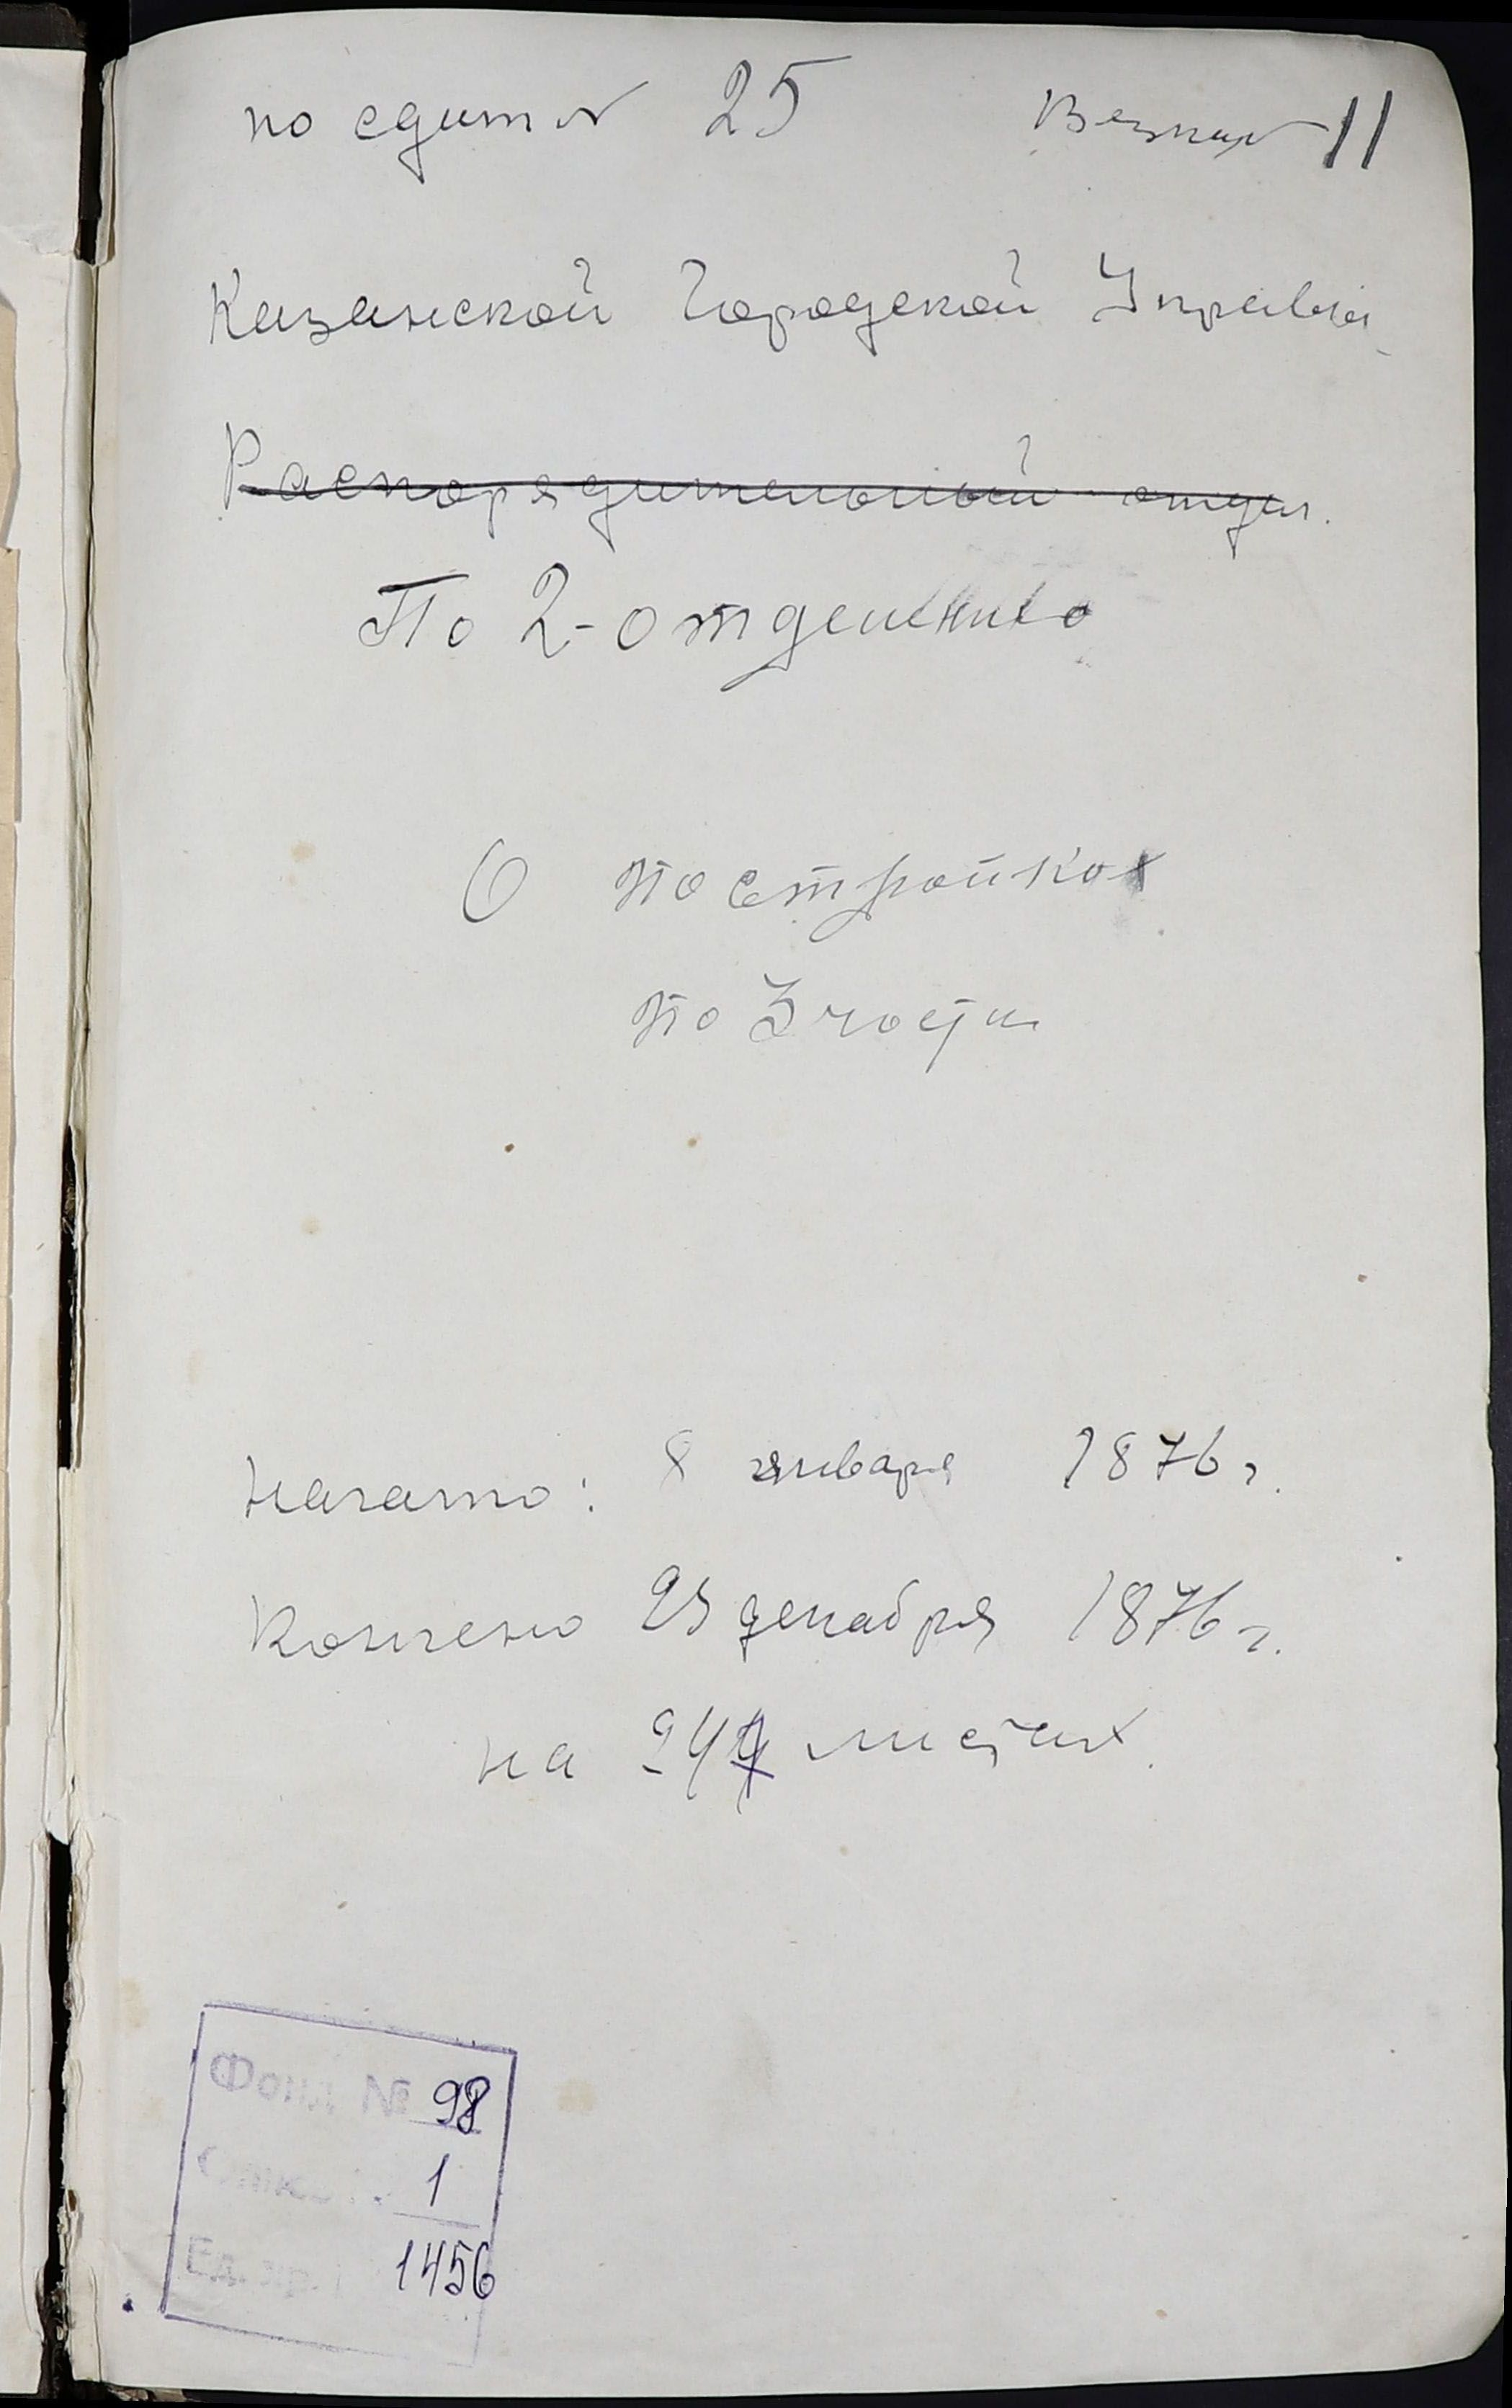 по 25
11
Казанской Городской Управы
Распорядительный отдел.
По 2-отделению
О постройках
по 3 части
Начато: 8 января 1876 г.
Кончено 23 декабря 1876 г.
на листах.
Фонд № 98
Опись № 1
Ед. хр. 1456